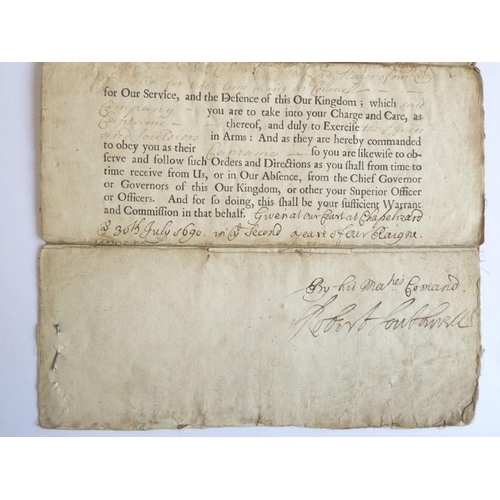 for Our Service, and the Defence of this Our Kingdom; which said
Company — you are to take into your Charge and Care, as
Captaine — thereof, and duly to Exercise the Officers
and Souldiers in Arms: And as they are hereby commanded
to obey you as their Captaine — so you are likewise to ob-
serve and follow such Orders and Directions as you shall from time to
time receive from Us, or in Our Absence, from the Chief Governor
or Governors of this Our Kingdom, or other your Superior Officer
or Officers. And for so doing, this shall be your sufficient Warrant
and Commission in that behalf. Given at our Court at Chapelizard
ye 30th July 1690, in ye Second yeare of Our Raigne.
By his Maties Comand.
Robert Southwell